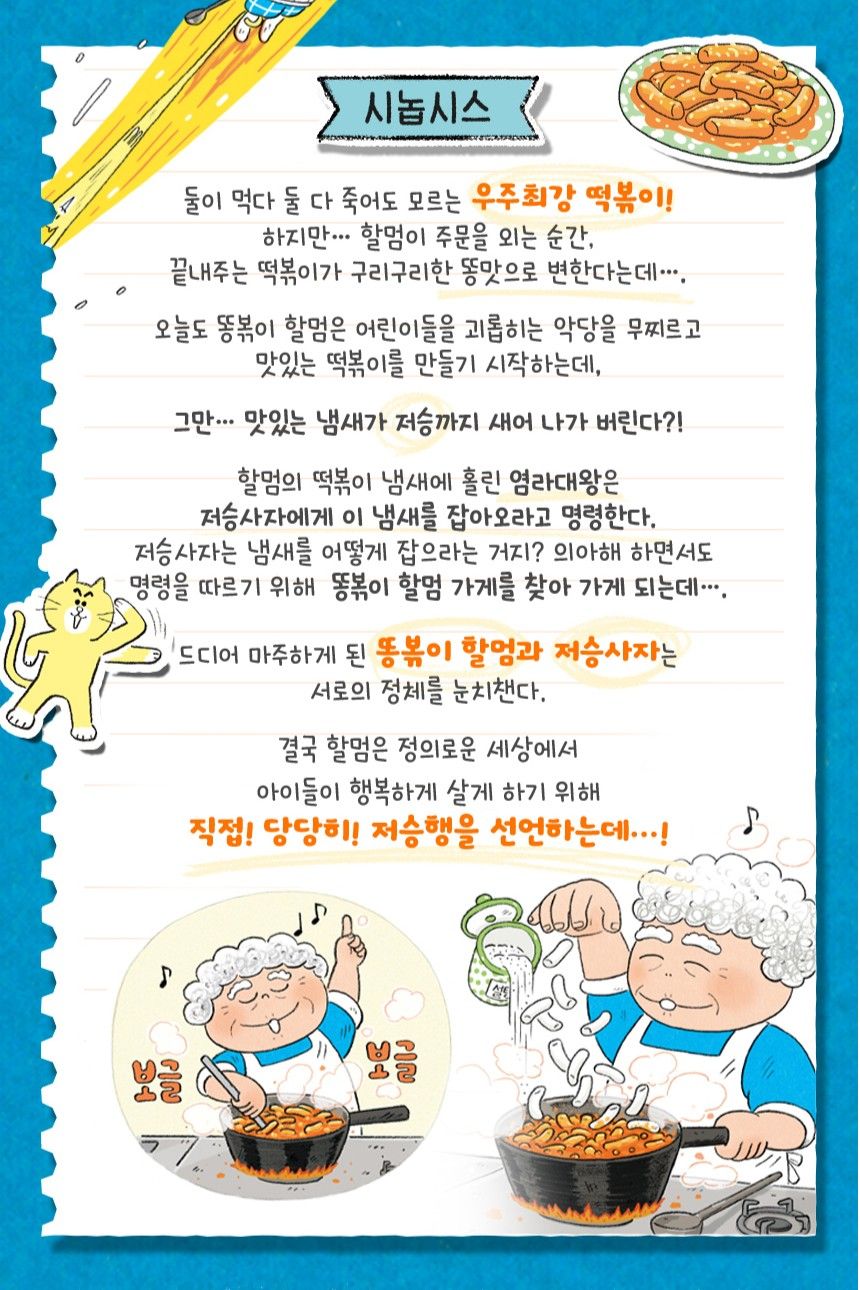 시놉시스
둘이 먹다 둘 다 죽어도 모르는 우주최강 떡볶이!
하지만… 할멈이 주문을 외는 순간,
끝내주는 떡볶이가 구리구리한 똥맛으로 변한다는데….
오늘도 똥볶이 할멈은 어린이들을 괴롭히는 악당을 무찌르고
맛있는 떡볶이를 만들기 시작하는데,
그만… 맛있는 냄새가 저승까지 새어 나가 버린다?!
할멈의 떡볶이 냄새에 홀린 염라대왕은
저승사자에게 이 냄새를 잡아오라고 명령한다.
저승사자는 냄새를 어떻게 잡으라는 거지? 의아해 하면서도
명령을 따르기 위해 똥볶이 할멈 가게를 찾아 가게 되는데….
드디어 마주하게 된 똥볶이 할멈과 저승사자는
서로의 정체를 눈치챈다.
결국 할멈은 정의로운 세상에서
아이들이 행복하게 살게 하기 위해
직접! 당당히! 저승행을 선언하는데…!
보글
보글
설탕